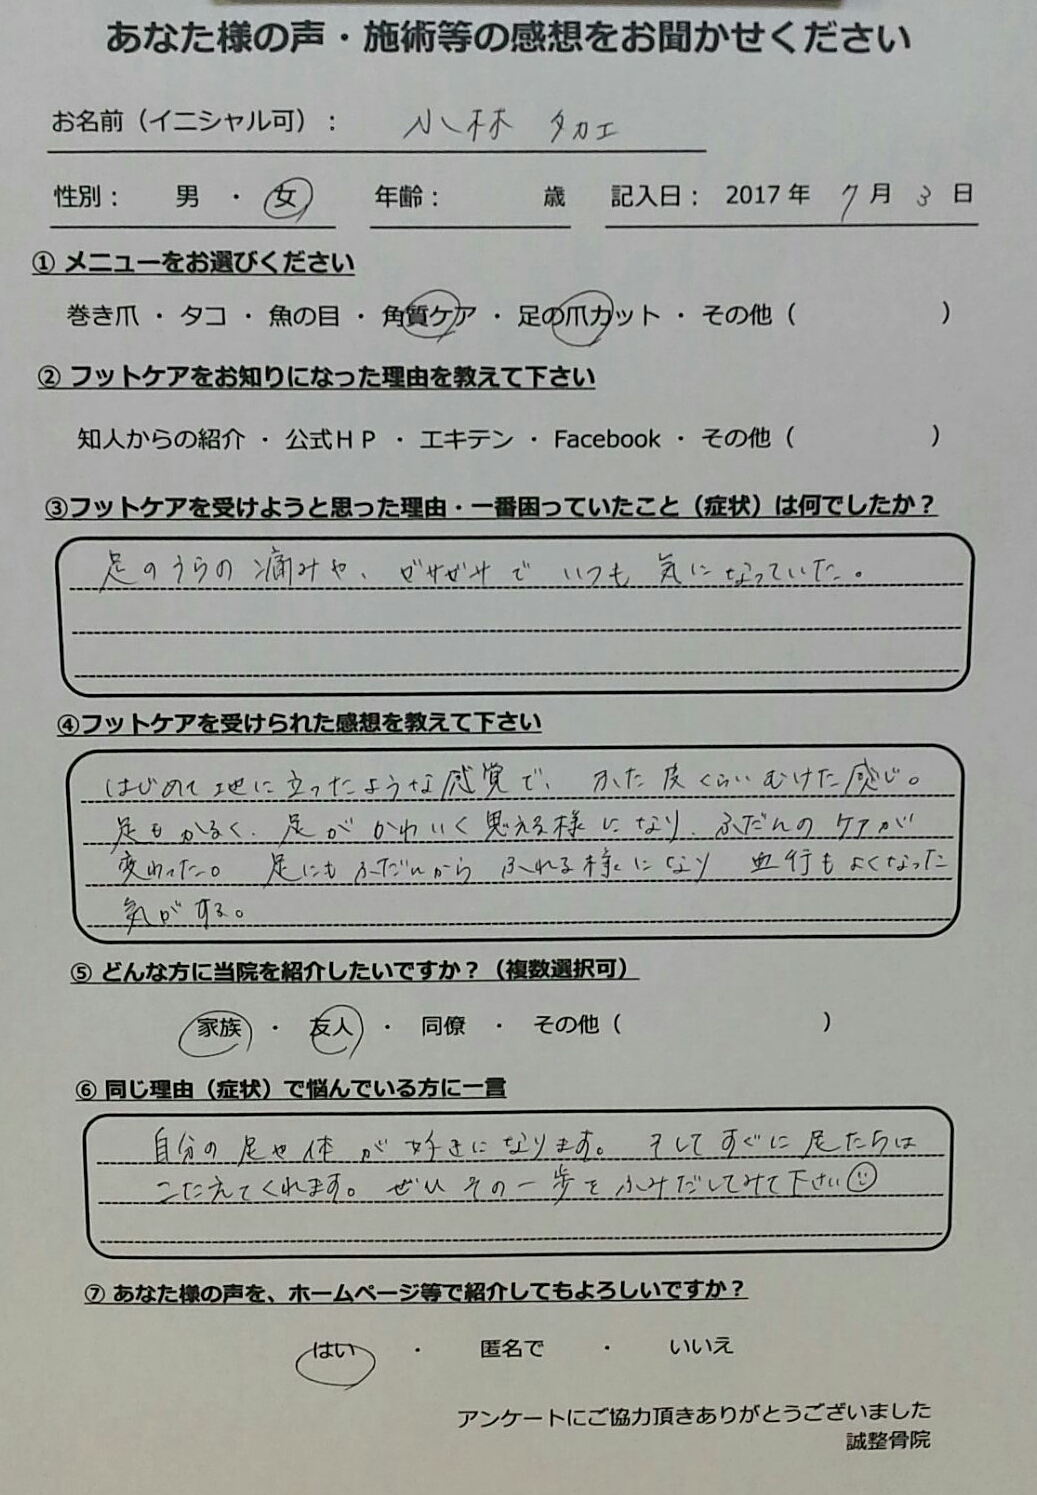 あなた様の声・施術等の感想をお聞かせください
お名前（イニシャル可）： 小林 タカエ
性別： 男 ・ 女 年齢： 歳 記入日： 2017 年 7 月 3 日
① メニューをお選びください
巻き爪 ・ タコ ・ 魚の目 ・ 角質ケア ・ 足の爪カット ・ その他（ ）
② フットケアをお知りになった理由を教えて下さい
知人からの紹介 ・ 公式ＨＰ ・ エキテン ・ Facebook ・ その他（ ）
③フットケアを受けようと思った理由・一番困っていたこと（症状）は何でしたか？
足のうらの痛みや、ガサガサで いつも 気になっていた。
④フットケアを受けられた感想を教えて下さい
はじめて地に立ったような感覚で、かた皮くらいむけた感じ。
足もかるく、足がかわいく思える様になり、ふだんのケアが
変わった。足にもふだんからふれる様になり 血行もよくなった
気がする。
⑤ どんな方に当院を紹介したいですか？（複数選択可）
家族 ・ 友人 ・ 同僚 ・ その他（ ）
⑥ 同じ理由（症状）で悩んでいる方に一言
自分の足や体が好きになります。そしてすぐに足たちは
こたえてくれます。ぜひその一歩をふみだしてみて下さい
⑦ あなた様の声を、ホームページ等で紹介してもよろしいですか？
はい ・ 匿名で ・ いいえ
アンケートにご協力頂きありがとうございました
誠整骨院